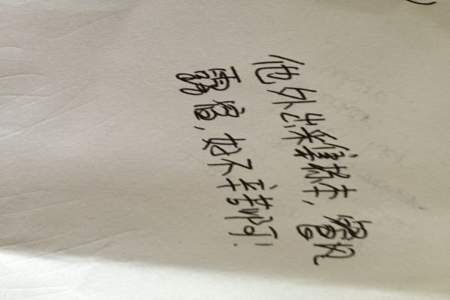 他外出采集标本，餐风
露宿，好不辛苦啊！